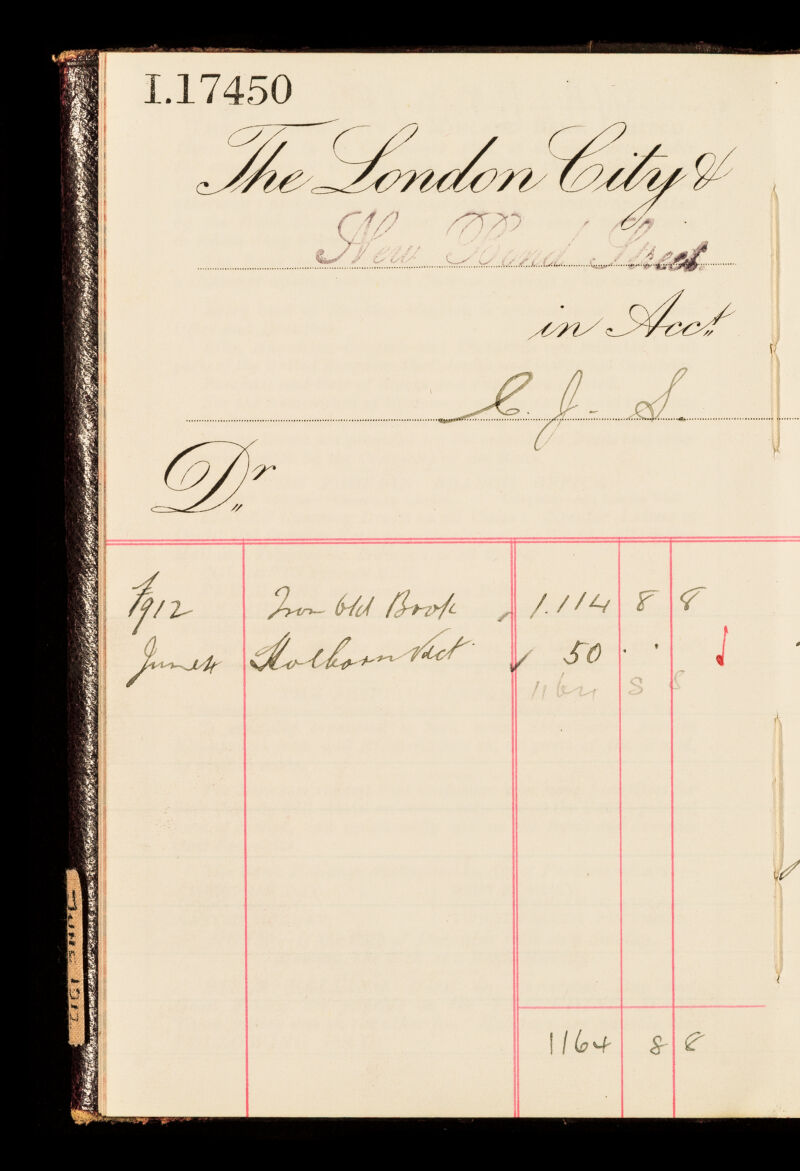 I.17450
The London City &
New Bond Street.
in Acct
C. J. S.
Dr
1912 From Old Book 1.114 8 8
June 4 Holborn Viact ✓ 50 . .
1164 8 8
1164 8 8
JUNE 1912